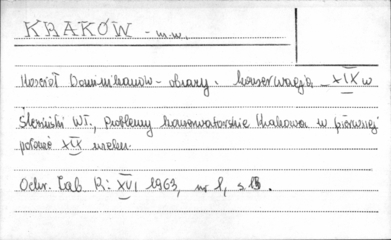 KRAKÓW - m.w.
Kościół Dominikanów - obrazy. konserwacja - XIX w
Ślesiński Wł., Problemy konserwatorskie Krakowa w pierwszej
połowie XIX wieku.
Ochr. Zab. R: XVI 1963, nr 1, s.